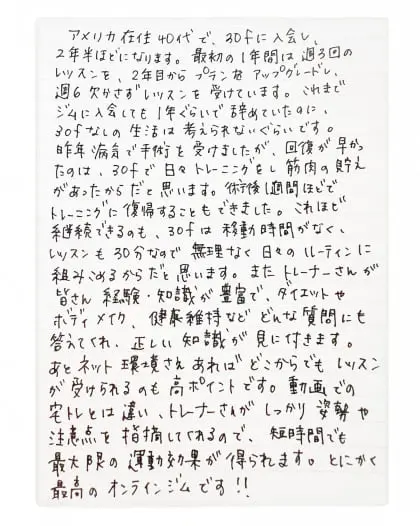 アメリカ在住40代で、30fに入会し、
2年半ほどになります。最初の1年間は週3回の
レッスンを、2年目からプランをアップグレードし、
週6欠かさずレッスンを受けています。これまで
ジムに入会しても1年ぐらいで辞めていたのに、
30fなしの生活は考えられないぐらいです。
昨年病気で手術を受けましたが、回復が早かっ
たのは、30fで日々トレーニングをし筋肉の貯え
があったからだと思います。術後1週間ほどで
トレーニングに復帰することもできました。これほど
継続できるのも、30fは移動時間がなく、
レッスンも30分なので無理なく日々のルーティンに
組みこめるからだと思います。またトレーナーさんが
皆さん経験・知識が豊富で、ダイエットや
ボディメイク、健康維持などどんな質問にも
答えてくれ、正しい知識が見に付きます。
あとネット環境さえあればどこからでもレッスン
が受けられるのも高ポイントです。動画での
宅トレとは違い、トレーナーさんがしっかり姿勢や
注意点を指摘してくれるので、短時間でも
最大限の運動効果が得られます。とにかく
最高のオンラインジムです!!